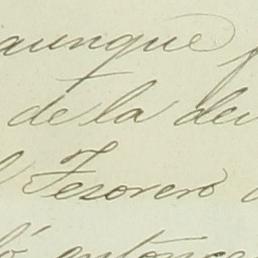 aunque
de la
Tesorero
entonce